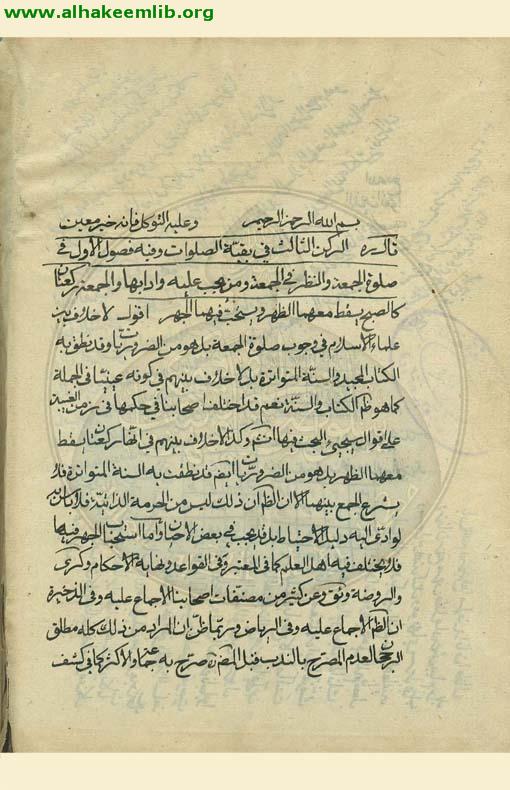 www.alhakeemlib.org
بسم الله الرحمن الرحيم وعليه التوكل فانه خير معين
قال ره الركن الثالث في بقية الصلوات وفيه فصول الاول في
صلوة الجمعة والنظر في الجمعة ومن يجب عليه وادابها والجمعة ركعتان
كالصبح يسقط معهما الظهر ويستحب فيهما الجهر اقول لا خلاف بين
علماء الاسلام في وجوب صلوة الجمعة بل هو من الضروريات وقد نطق به
الكتاب المجيد والسنة المتواترة بل لا خلاف بينهم في كونه عينيا في الجملة
كما هو ظم الكتاب والسنة نعم قد اختلف اصحابنا في حكمها في زمن الغيبة
على اقوال سيجيء البحث فيها انتم وكذا لا خلاف بينهم في انها ركعتان يسقط
معهما الظهر بل هو من الضروريات ايضم قد نطقت به السنة المتواترة فلا
يشرع الجمع بينهما الا ان الظم ان ذلك ليس من الحرمة الذاتية فلا باس به
لو ادى اليه دليل الاحتياط بل قد يجب في بعض الاحيان واما استحباب الجهر فيها
فلا يختلف فيه اهل العلم كما في المعتبر وفي القواعد ونهاية الاحكام وكرى
والروضة وثوق وعن كثير من مصنفات اصحابنا الاجماع عليه وفي الذخيرة
ان الظم الاجماع عليه وفي الرياض وربما ظن ان المراد من ذلك كله مطلق
الرجحان لعدم المصرح بالندب قبل المصره صرح به جماعة والاكثر كما في كشف